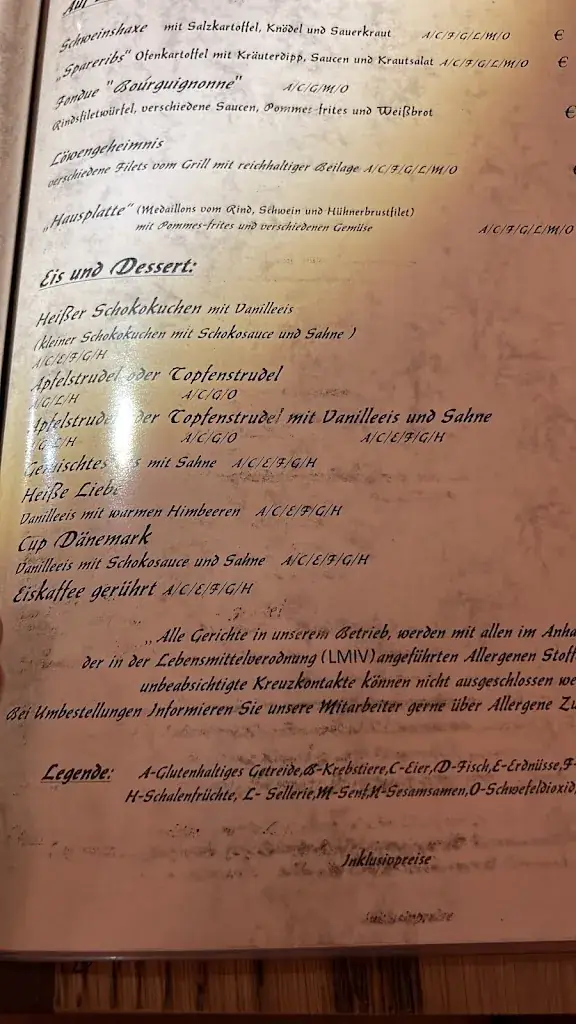 Auf
Schweinshaxe mit Salzkartoffel, Knödel und Sauerkraut A/C/F/G/L/M/O €
„Spareribs“ Ofenkartoffel mit Kräuterdipp, Saucen und Krautsalat A/C/F/G/L/M/O €
Fondue "Bourguignonne" A/C/G/M/O
Rindsfiletwürfel, verschiedene Saucen, Pommes-frites und Weißbrot €
Löwengeheimnis
verschiedene Filets vom Grill mit reichhaltiger Beilage A/C/F/G/L/M/O
„Hausplatte“ (Medaillons vom Rind, Schwein und Hühnerbrustfilet)
mit Pommes-frites und verschiedenen Gemüse A/C/F/G/L/M/O
Eis und Dessert:
Heißer Schokokuchen mit Vanilleeis
(kleiner Schokokuchen mit Schokosauce und Sahne )
A/C/E/F/G/H
Apfelstrudel oder Topfenstrudel
A/G/L/H A/C/G/O
Apfelstrudel oder Topfenstrudel mit Vanilleeis und Sahne
/G/L/H A/C/G/O A/C/E/F/G/H
Gemischtes Eis mit Sahne A/C/E/F/G/H
Heiße Liebe
Vanilleeis mit warmen Himbeeren A/C/E/F/G/H
Cup Dänemark
Vanilleeis mit Schokosauce und Sahne A/C/E/F/G/H
Eiskaffee gerührt A/C/E/F/G/H
„Alle Gerichte in unserem Betrieb, werden mit allen im Anha
der in der Lebensmittelverodnung (LMIV) angeführten Allergenen Stoff
unbeabsichtigte Kreuzkontakte können nicht ausgeschlossen we
Bei Umbestellungen Informieren Sie unsere Mitarbeiter gerne über Allergene Zu
Legende: A-Glutenhaltiges Getreide,B-Krebstiere,C-Eier,D-Fisch,E-Erdnüsse,F-
H-Schalenfrüchte, L- Sellerie,M-Senf,N-Sesamsamen,O-Schwefeldioxid,
Inklusivpreise